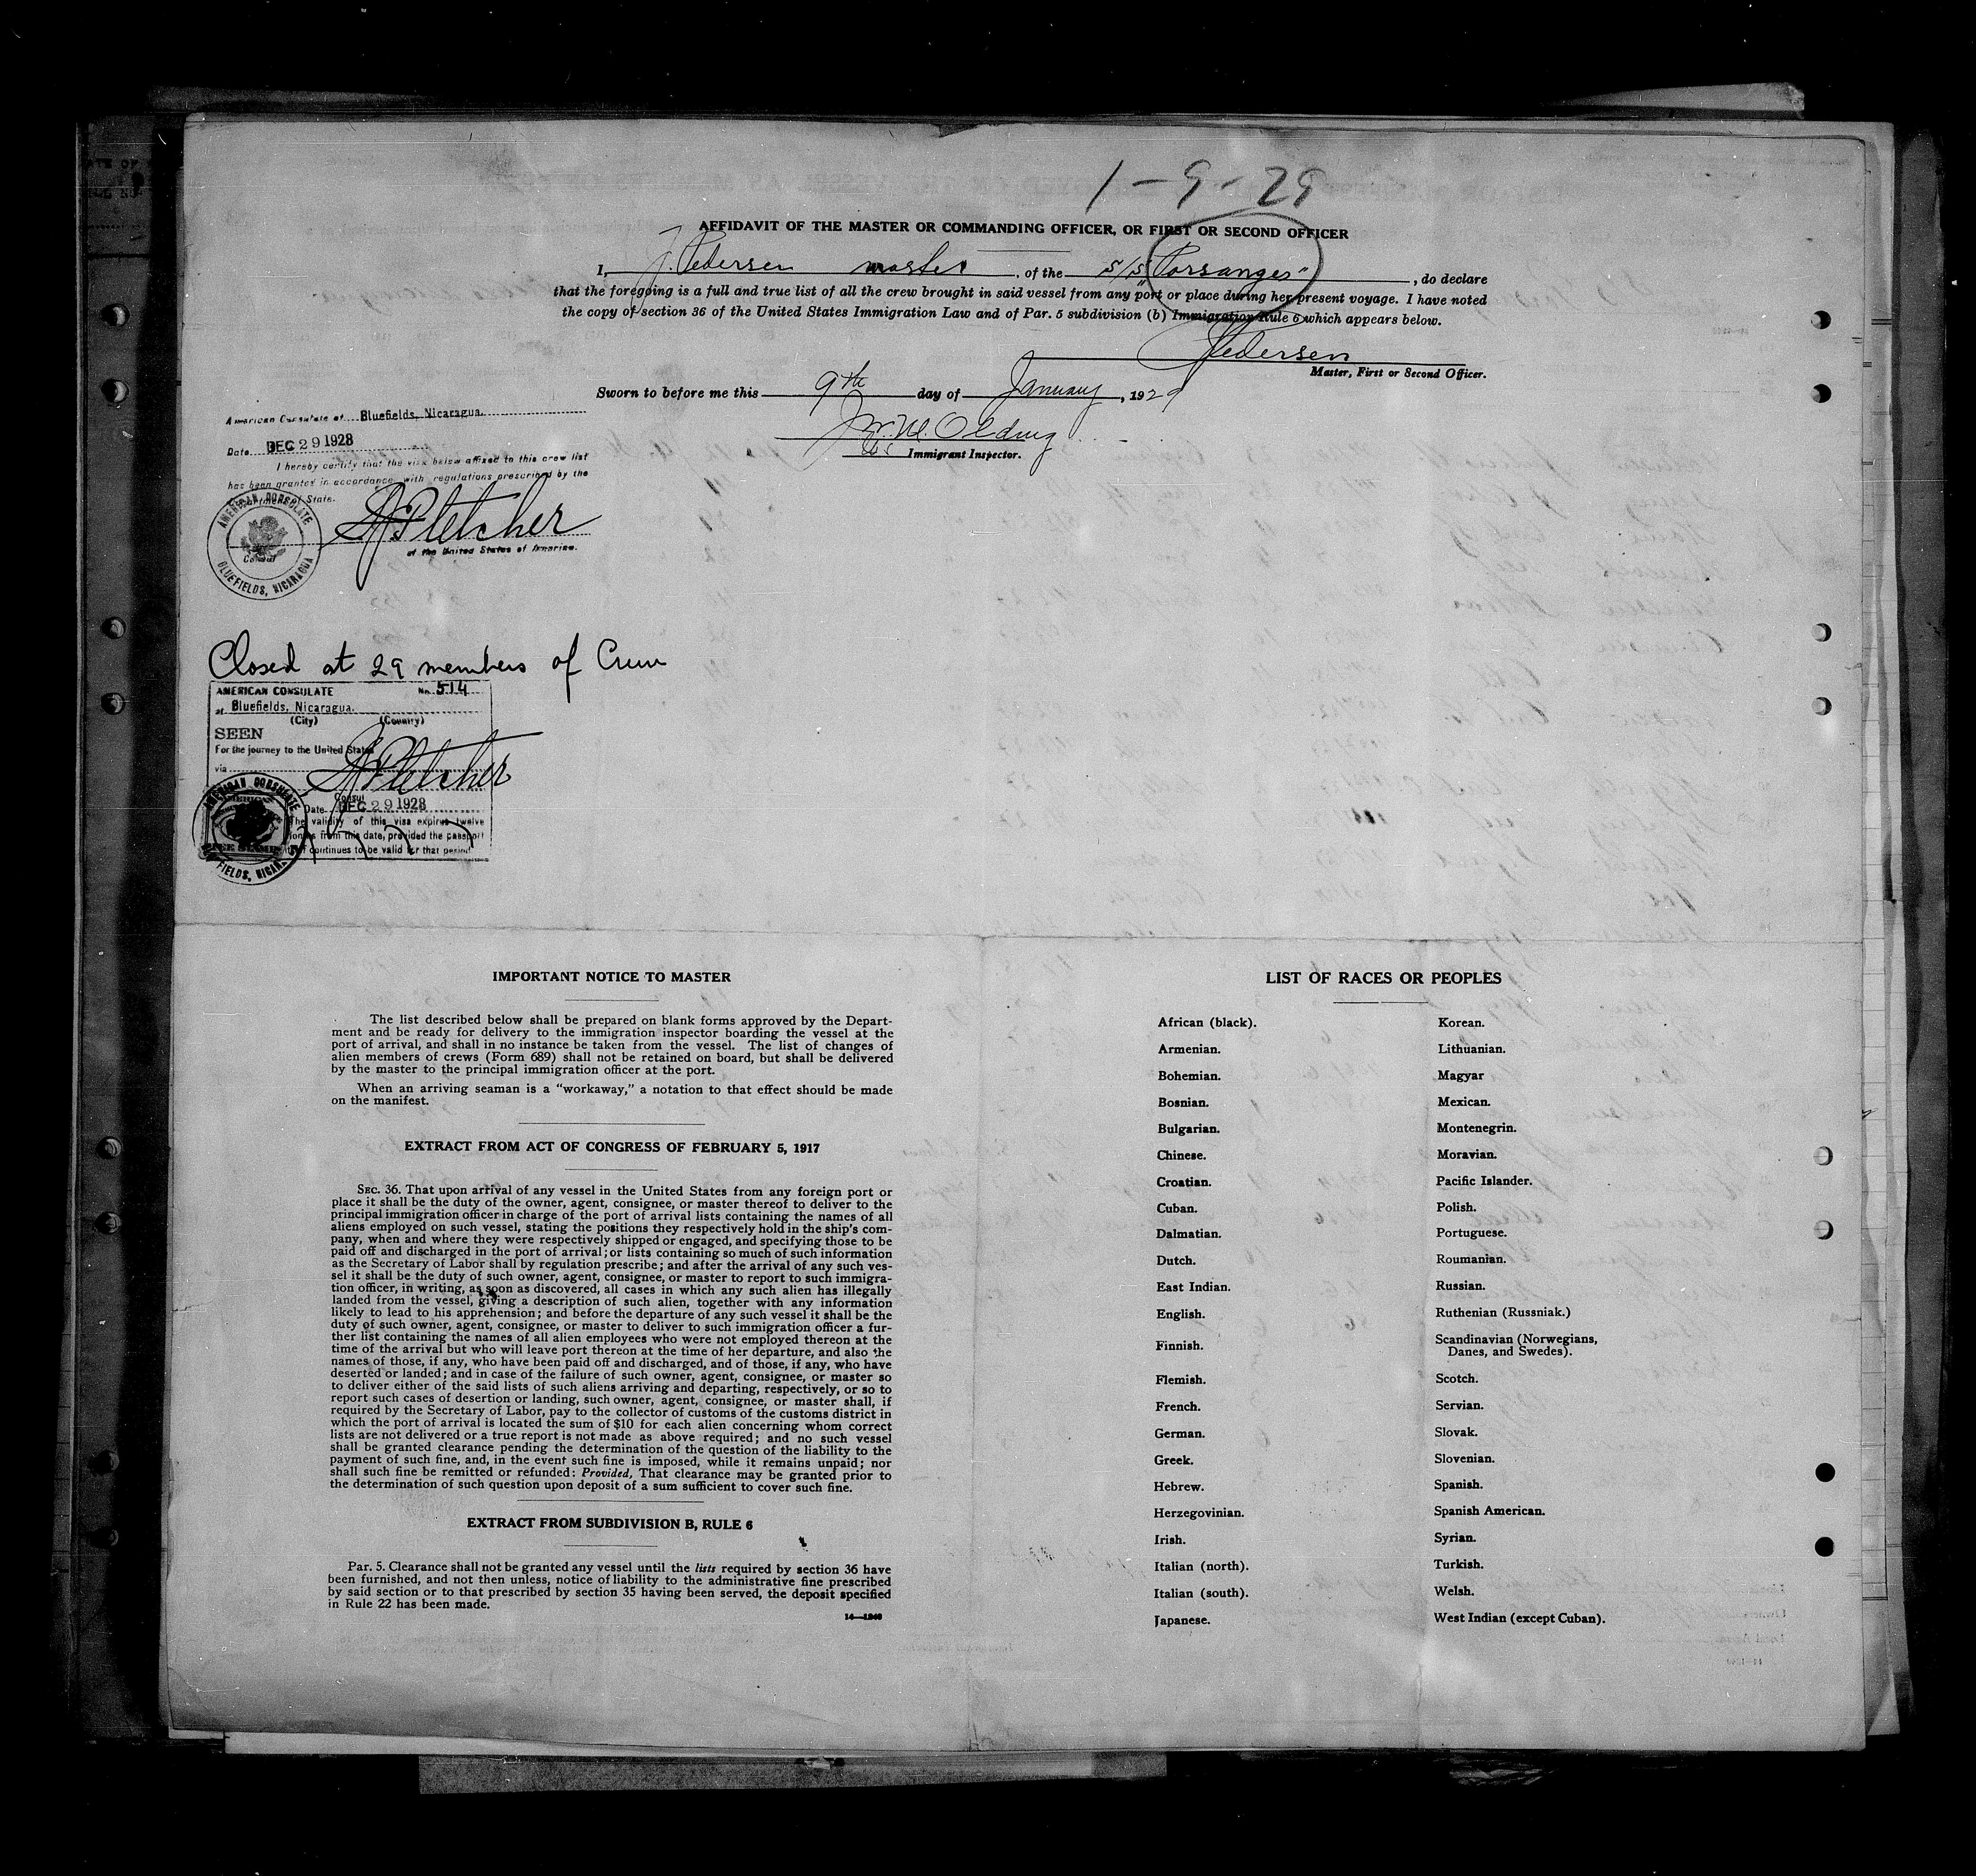 1-9-29
AFFIDAVIT OF THE MASTER OR COMMANDING OFFICER, OR FIRST OR SECOND OFFICER
I, J. Pedersen master, of the S/S "Porsanger", do declare
that the foregoing is a full and true list of all the crew brought in said vessel from any port or place during her present voyage. I have noted
the copy of section 36 of the United States Immigration Law and of Par. 5 subdivision (b) Immigration Rule 6 which appears below.
J Pedersen
Master, First or Second Officer.
Sworn to before me this 9th day of January, 1929
Immigrant Inspector.
American Consulate at Bluefields, Nicaragua.
Date DEC 29 1928
I hereby certify that the visa below affixed to this crew list
has been granted in accordance with regulations prescribed by the
Department of State.
Fletcher
of the United States of America.
AMERICAN CONSULATE
Consul
BLUEFIELDS, NICARAGUA
Closed at 29 members of Crew
AMERICAN CONSULATE No. 514
at Bluefields, Nicaragua.
(City) (Country)
SEEN
For the journey to the United States
via
Fletcher
Consul
Date DEC 29 1928
The validity of this visa expires twelve
months from this date, provided the passport
continues to be valid for that period.
AMERICAN CONSULATE
IMPORTANT NOTICE TO MASTER
The list described below shall be prepared on blank forms approved by the Depart-
ment and be ready for delivery to the immigration inspector boarding the vessel at the
port of arrival, and shall in no instance be taken from the vessel. The list of changes of
alien members of crews (Form 689) shall not be retained on board, but shall be delivered
by the master to the principal immigration officer at the port.
When an arriving seaman is a "workaway," a notation to that effect should be made
on the manifest.
EXTRACT FROM ACT OF CONGRESS OF FEBRUARY 5, 1917
SEC. 36. That upon arrival of any vessel in the United States from any foreign port or
place it shall be the duty of the owner, agent, consignee, or master thereof to deliver to the
principal immigration officer in charge of the port of arrival lists containing the names of all
aliens employed on such vessel, stating the positions they respectively hold in the ship's com-
pany, when and where they were respectively shipped or engaged, and specifying those to be
paid off and discharged in the port of arrival; or lists containing so much of such information
as the Secretary of Labor shall by regulation prescribe; and after the arrival of any such ves-
sel it shall be the duty of such owner, agent, consignee, or master to report to such immigra-
tion officer, in writing, as soon as discovered, all cases in which any such alien has illegally
landed from the vessel, giving a description of such alien, together with any information
likely to lead to his apprehension; and before the departure of any such vessel it shall be the
duty of such owner, agent, consignee, or master to deliver to such immigration officer a fur-
ther list containing the names of all alien employees who were not employed thereon at the
time of the arrival but who will leave port thereon at the time of her departure, and also the
names of those, if any, who have been paid off and discharged, and of those, if any, who have
deserted or landed; and in case of the failure of such owner, agent, consignee, or master so
to deliver either of the said lists of such aliens arriving and departing, respectively, or so to
report such cases of desertion or landing, such owner, agent, consignee, or master shall, if
required by the Secretary of Labor, pay to the collector of customs of the customs district in
which the port of arrival is located the sum of $10 for each alien concerning whom correct
lists are not delivered or a true report is not made as above required; and no such vessel
shall be granted clearance pending the determination of the question of the liability to the
payment of such fine, and, in the event such fine is imposed, while it remains unpaid; nor
shall such fine be remitted or refunded: Provided, That clearance may be granted prior to
the determination of such question upon deposit of a sum sufficient to cover such fine.
EXTRACT FROM SUBDIVISION B, RULE 6
Par. 5. Clearance shall not be granted any vessel until the lists required by section 36 have
been furnished, and not then unless, notice of liability to the administrative fine prescribed
by said section or to that prescribed by section 35 having been served, the deposit specified
in Rule 22 has been made.
LIST OF RACES OR PEOPLES
African (black).
Armenian.
Bohemian.
Bosnian.
Bulgarian.
Chinese.
Croatian.
Cuban.
Dalmatian.
Dutch.
East Indian.
English.
Finnish.
Flemish.
French.
German.
Greek.
Hebrew.
Herzegovinian.
Irish.
Italian (north).
Italian (south).
Japanese.
Korean.
Lithuanian.
Magyar
Mexican.
Montenegrin.
Moravian.
Pacific Islander.
Polish.
Portuguese.
Roumanian.
Russian.
Ruthenian (Russniak.)
Scandinavian (Norwegians,
Danes, and Swedes).
Scotch.
Servian.
Slovak.
Slovenian.
Spanish.
Spanish American.
Syrian.
Turkish.
Welsh.
West Indian (except Cuban).